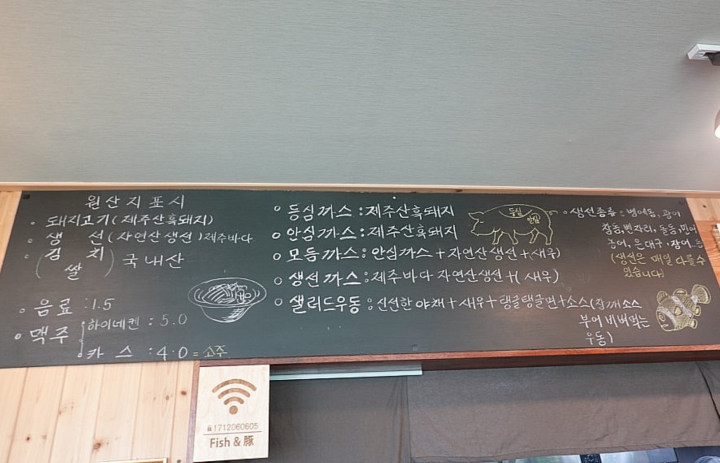 원산지표시
• 돼지고기(제주산흑돼지)
• 생 선(자연산생선)제주바다
• (김 치 쌀) 국내산
• 음료 : 1.5
• 맥주 하이네켄 : 5.0
카 스 : 4.0 = 소주
• 등심까스 : 제주산흑돼지
• 안심까스 : 제주산흑돼지
• 모듬까스 : 안심까스 + 자연산생선 + 새우
• 생선까스 : 제주바다 자연산생선 + (새우)
• 샐러드우동 : 신선한 야채 + 새우 + 탱글탱글면 + 소스(참깨소스
부어 비벼먹는
우동)
등심
안심
• 생선종류 : 뱅에돔, 광어
참돔, 벤자리, 돌돔, 민어
농어, 은대구, 장어
(생선은 매일 다를수
있습니다)
1712060605
Fish & 豚